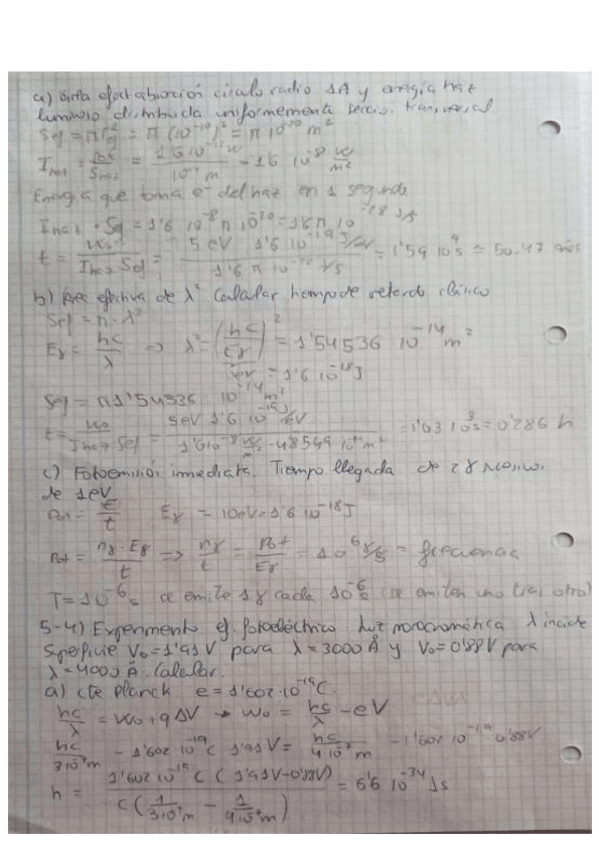 a) área efect absorción círculo radio 1Å y energía haz
luminoso distribuida uniformemente secció. transversal
Sef = π r² = π (10⁻¹⁰)² = π 10⁻²⁰ m²
I haz = Pot / S haz = 1'6 10 w / 10 m = 1'6 10⁻⁸ w/m²
Energía que toma e⁻ del haz en 1 segundo
I haz · Sef = 1'6 10⁻⁸ π 10⁻²⁰ = 1'6 π 10⁻²⁸ J/s
t = W₀ / I haz Sef = 5 eV 1'6 10⁻¹⁹ J/eV / 1'6 π 10 J/s = 1'59 10⁹ s ≃ 50.47 años
b) Área efectiva de λ² Calcular tiempo de retardo clásico
Sef = π · λ²
Eγ = hc/λ ⇒ λ² = (hc/Eγ)² = 1'54536 10⁻¹⁴ m²
= 1'6 10⁻¹⁸ J
Sef = π 1'54536 10⁻¹⁴ m²
t = W₀ / I haz Sef = 5eV 1'6 10⁻¹⁹ J/eV / 1'6 10⁻⁸ w/m² · 4'8549 10⁻¹⁴ m² = 1'03 10³ s = 0'286 h
c) Fotoemisión inmediata. Tiempo llegada de 2 γ
de 1eV
Pot = E/t Eγ = 10eV = 1'6 10⁻¹⁸ J
Pot = nγ · Eγ / t ⇒ nγ/t = Pot/Eγ = 10⁶ γ/s = frecuencia
T = 10⁻⁶ s se emite 1γ cada 10⁻⁶ s (se emiten uno tras otro)
5-4) Experimento ef. fotoeléctrico luz monocromática λ incide
superficie V₀ = 1'91 V para λ = 3000 Å y V₀ = 0'88 V para
λ = 4000 Å. Calcular.
a) cte Planck e = 1'602 · 10⁻¹⁹ C.
hc/λ = W₀ + q ΔV → W₀ = hc/λ - eV
hc / 3 10⁻⁷ m - 1'602 10⁻¹⁹ C 1'91V = hc / 4 10⁻⁷ m - 1'602 10⁻¹⁹ 0'88V
h = 1'602 10⁻¹⁹ C (1'91V - 0'88V) / c (1 / 3 10⁻⁷ m - 1 / 4 10⁻⁷ m) = 6'6 10⁻³⁴ J s